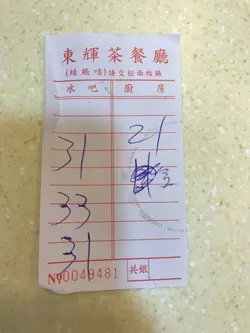 東輝茶餐廳
(結賬咭)請交柜面結賬
水吧 廚房
21
31
33
31
No 0049481 共銀